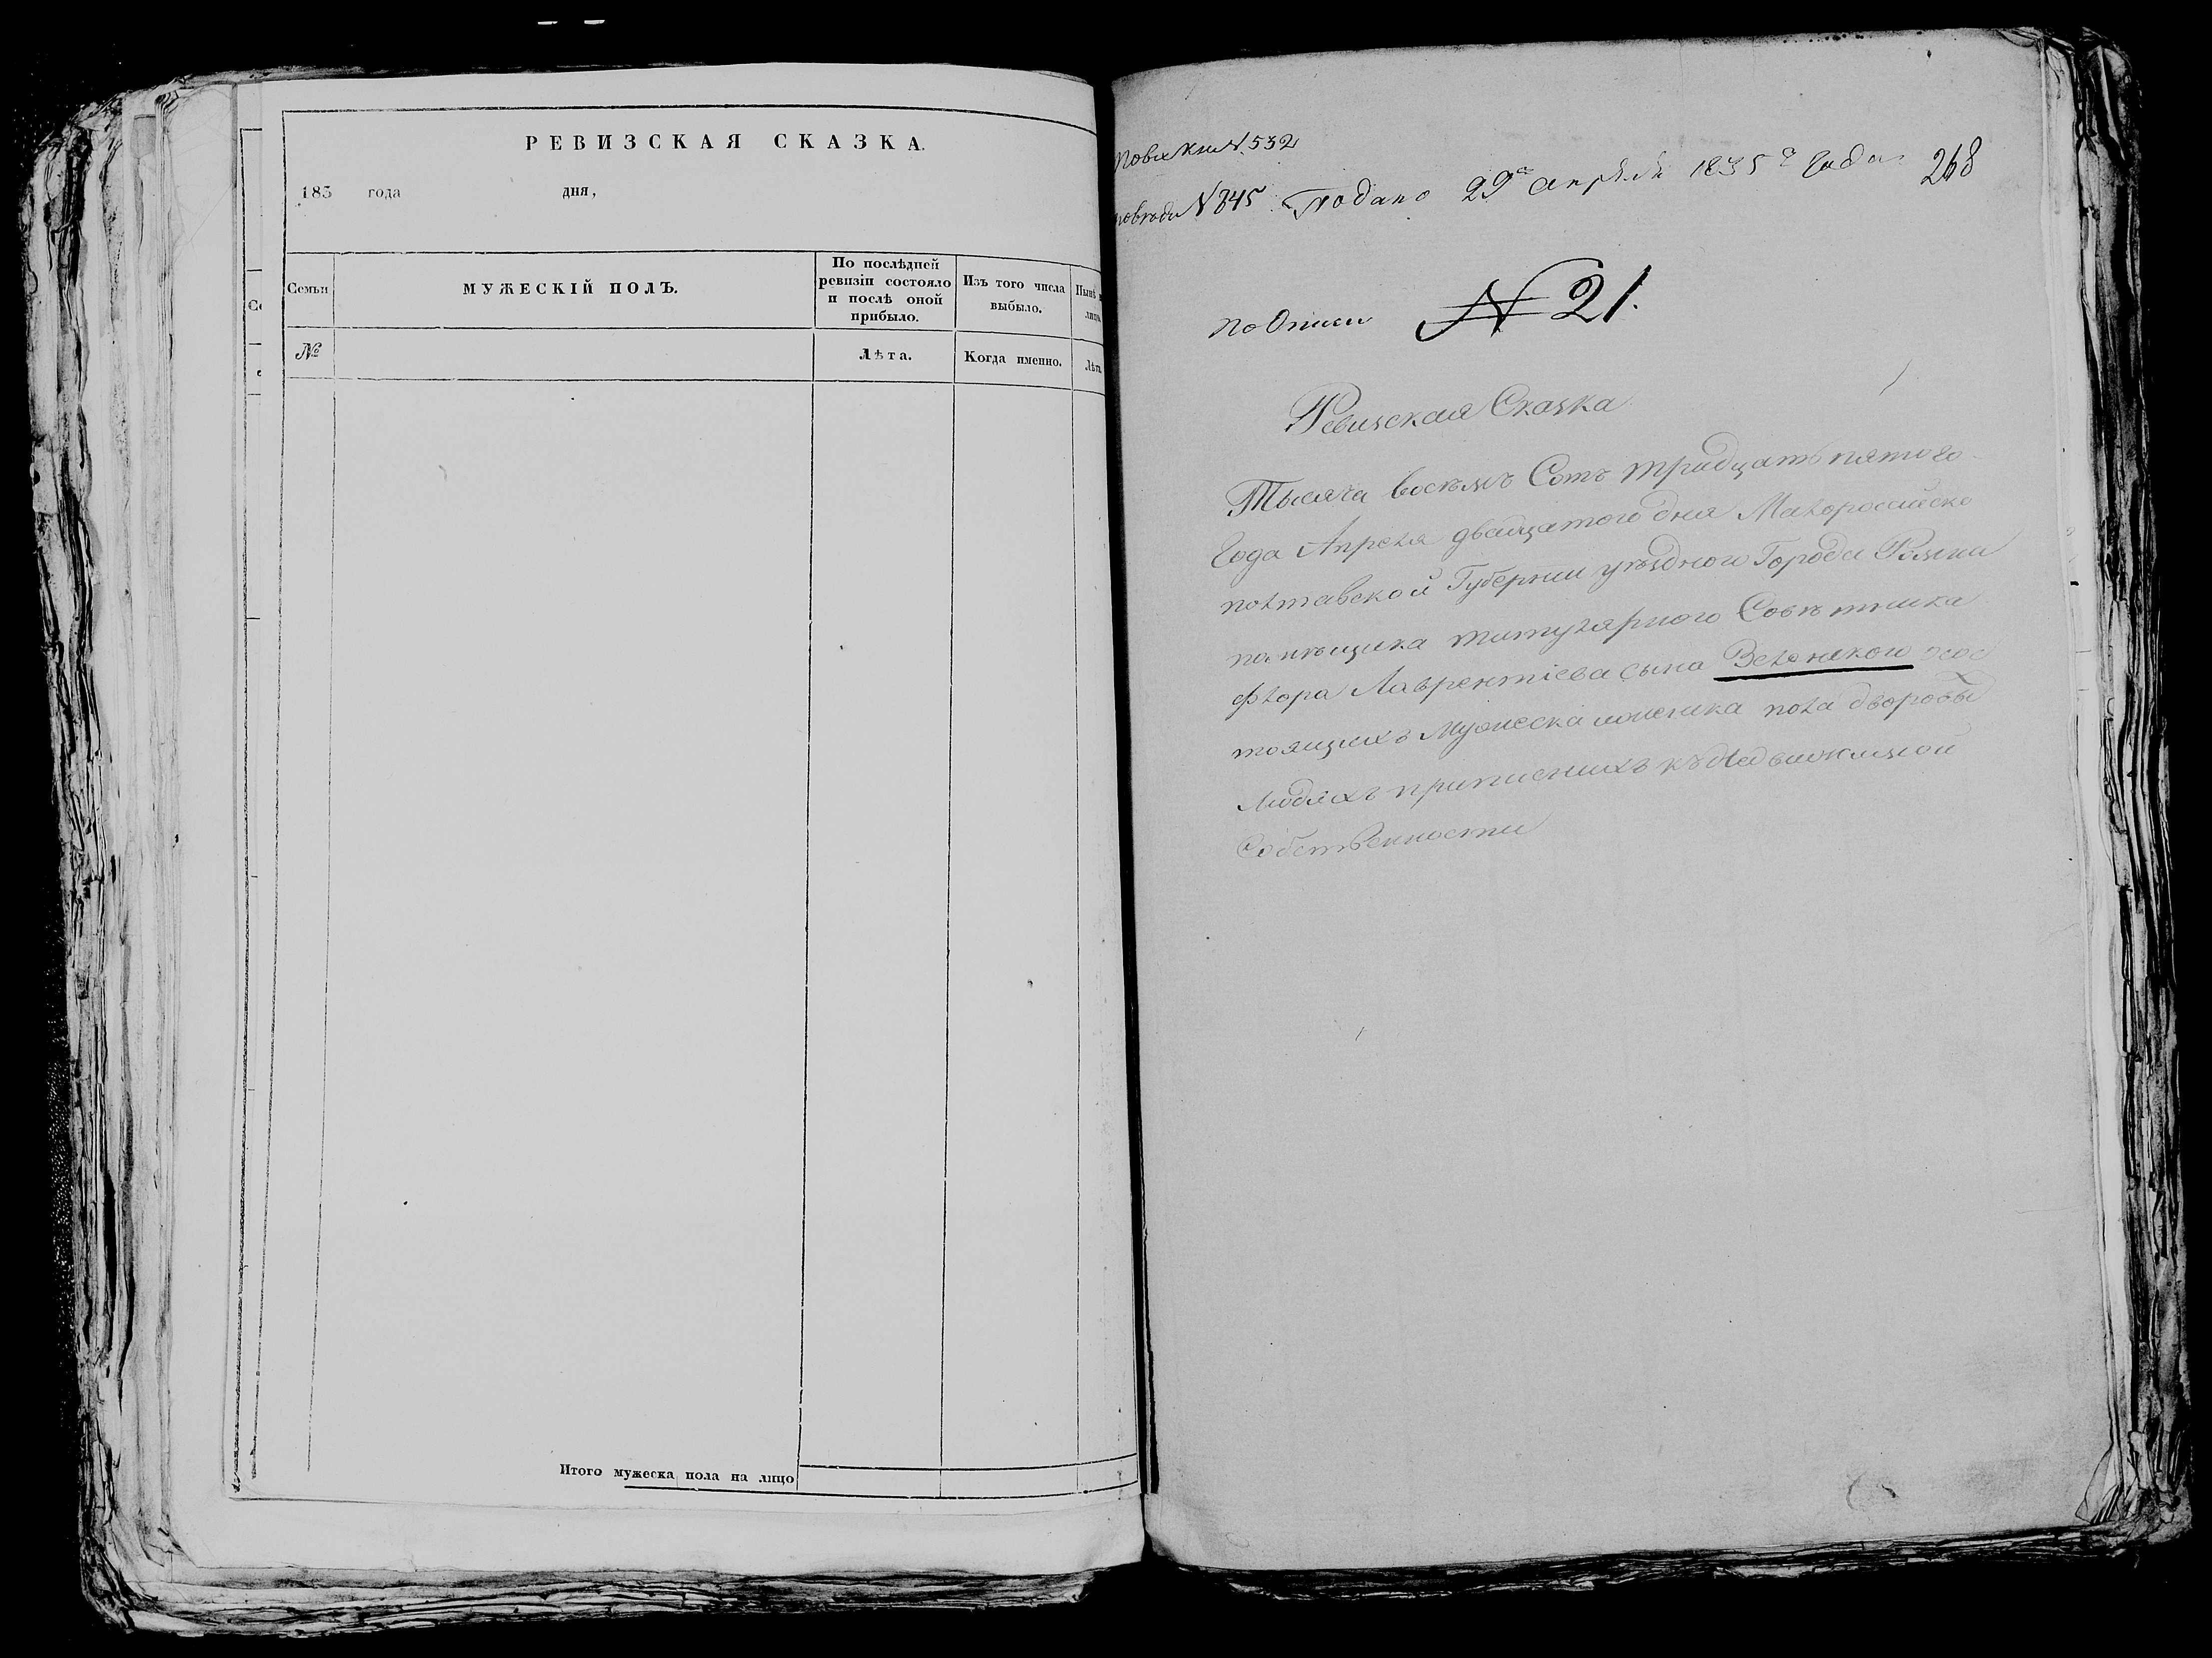 РЕВИЗСКАЯ СКАЗКА.
183 года дня,
Семьи
МУЖЕСКІЙ ПОЛЪ.
По послѣдней
ревизіи состояло
и послѣ оной
прибыло.
Изъ того числа
выбыло.
№
Лѣта.
Когда именно.
Итого мужеска пола на лицо
№ 532
№ 845 Подано 29го апреля 1835го года
268
по Описи № 21.
Ревизская Сказка
Тысяча восемъ Сотъ тридцатъ пятого
Года Апреля двацатого дня Малоросийско
полтавской Губернии уѣздного Города
помѣщика титулярного Совѣтника
Флора Лаврентіева сына осос
тоящихъ Мужеска иженска пола дворовы
Людяхъ приписнихъ къ Недвижимой
Собственности